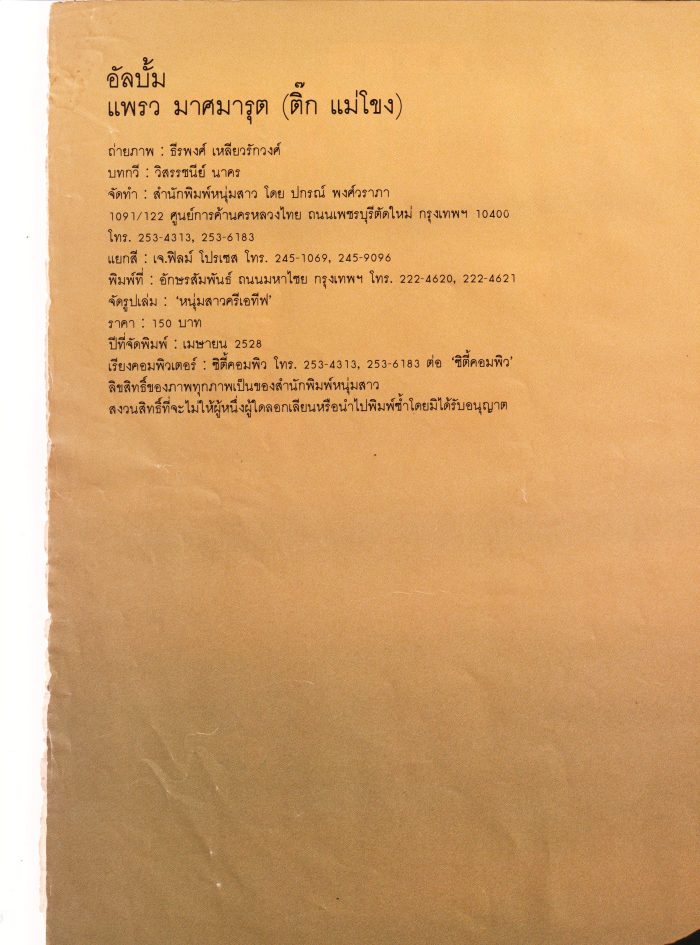 อัลบั้ม
แพรว มาศมารุต (ติ๊ก แม่โขง)
ถ่ายภาพ : ธีรพงศ์ เหลียวรักวงศ์
บทกวี : วิสรรชนีย์ นาคร
จัดทำ : สำนักพิมพ์หนุ่มสาว โดย ปกรณ์ พงศ์วราภา
1091/122 ศูนย์การค้านครหลวงไทย ถนนเพชรบุรีตัดใหม่ กรุงเทพฯ 10400
โทร. 253-4313, 253-6183
แยกสี : เจ.ฟิลม์ โปรเซส โทร. 245-1069, 245-9096
พิมพ์ที่ : อักษรสัมพันธ์ ถนนมหาไชย กรุงเทพฯ โทร. 222-4620, 222-4621
จัดรูปเล่ม : ‘หนุ่มสาวครีเอทีฟ’
ราคา : 150 บาท
ปีที่จัดพิมพ์ : เมษายน 2528
เรียงคอมพิวเตอร์ : ซิตี้คอมพิว โทร. 253-4313, 253-6183 ต่อ ‘ซิตี้คอมพิว’
ลิขสิทธิ์ของภาพทุกภาพเป็นของสำนักพิมพ์หนุ่มสาว
สงวนสิทธิ์ที่จะไม่ให้ผู้หนึ่งผู้ใดลอกเลียนหรือนำไปพิมพ์ซ้ำโดยมิได้รับอนุญาต